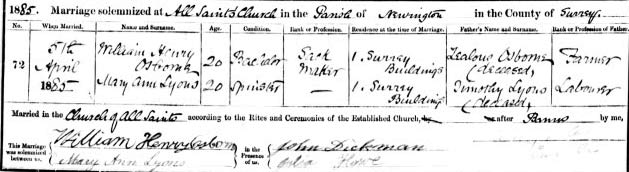 1885. Marriage solemnized at All Saints Church in the Parish of Newington in the County of Surrey
No. When Married. Name and Surname. Age. Condition. Rank or Profession. Residence at the time of Marriage. Father's Name and Surname. Rank or Profession of Father.
72 5th April 1885 William Henry Osborne 20 Bachelor Sack Maker 1. Surrey Buildings Zealous Osborne (deceased) Farmer
Mary Ann Lyons 20 Spinster — 1. Surrey Buildings Timothy Lyons (deceased) Labourer
Married in the Church of All Saints according to the Rites and Ceremonies of the Established Church, by after Banns by me,
This Marriage was solemnized between us, William Henry Osborn Mary Ann Lyons In the Presence of us, John Dickman Howe